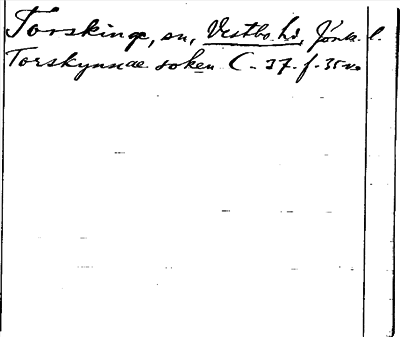 Torskinge, sn, Vestbo hd, Jönk. l.
Torskynnæ soken C-27. f. 35 v.